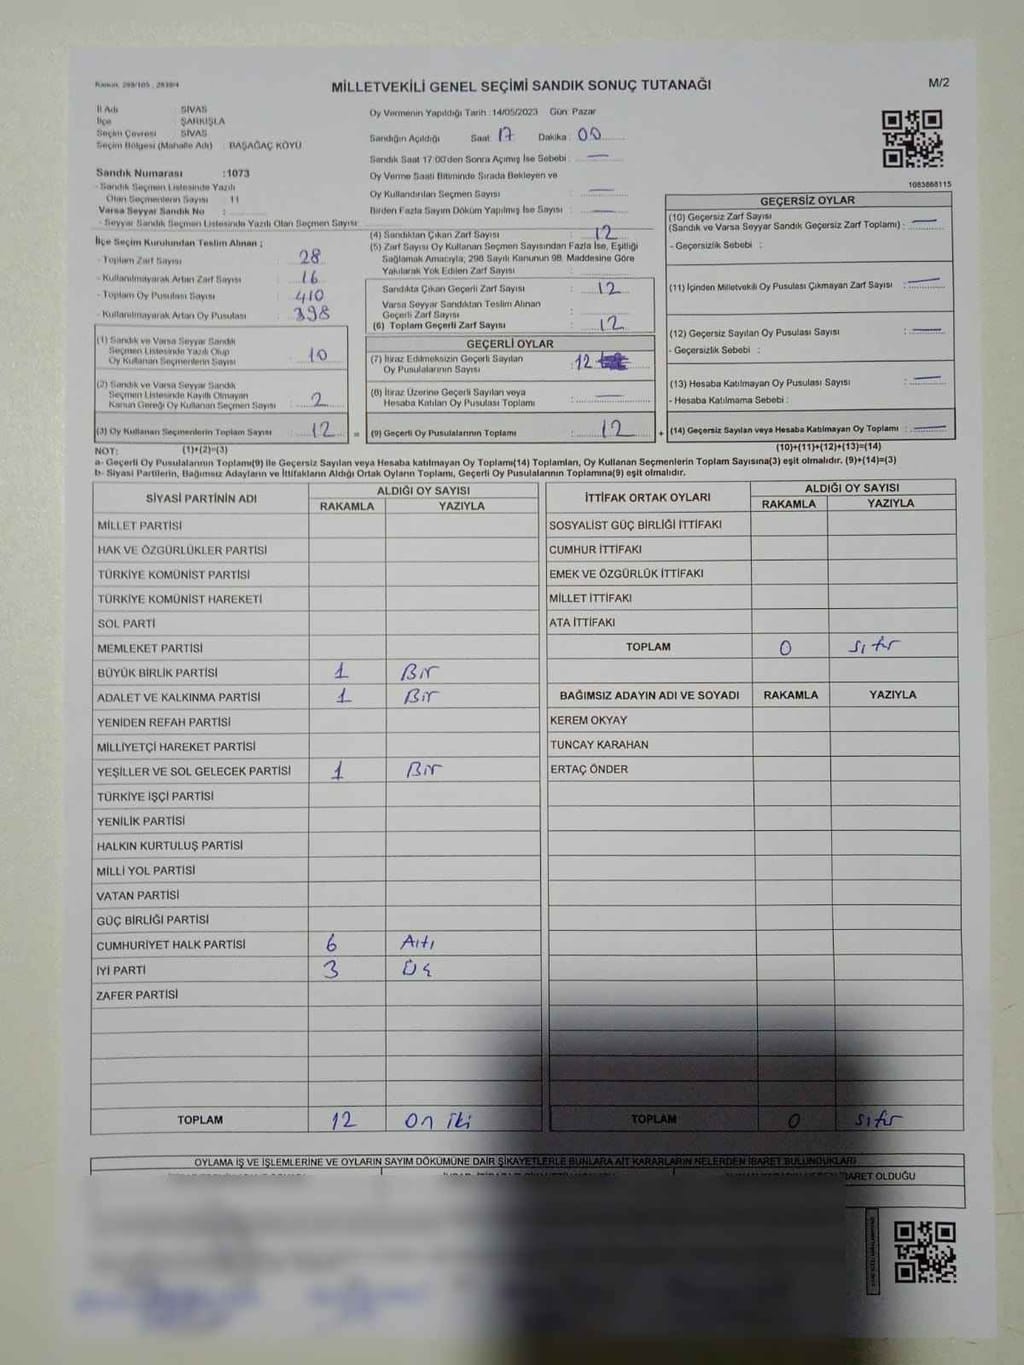 Kanun: 298/105 , 2839/4
MİLLETVEKİLİ GENEL SEÇİMİ SANDIK SONUÇ TUTANAĞI
M/2
İl Adı : SİVAS
İlçe : ŞARKIŞLA
Seçim Çevresi : SİVAS
Seçim Bölgesi (Mahalle Adı) : BAŞAĞAÇ KÖYÜ
Sandık Numarası :1073
- Sandık Seçmen Listesinde Yazılı
Olan Seçmenlerin Sayısı : 11
Varsa Seyyar Sandık No :
- Seyyar Sandık Seçmen Listesinde Yazılı Olan Seçmen Sayısı:
Oy Vermenin Yapıldığı Tarih : 14/05/2023 Gün: Pazar
Sandığın Açıldığı Saat: 17 Dakika : 00
Sandık Saat 17:00'den Sonra Açılmış İse Sebebi : —
Oy Verme Saati Bitiminde Sırada Bekleyen ve
Oy Kullandırılan Seçmen Sayısı : —
Birden Fazla Sayım Döküm Yapılmış İse Sayısı : —
1083868115
İlçe Seçim Kurulundan Teslim Alınan ;
- Toplam Zarf Sayısı : 28
- Kullanılmayarak Artan Zarf Sayısı : 16
- Toplam Oy Pusulası Sayısı : 410
- Kullanılmayarak Artan Oy Pusulası : 398
(1) Sandık ve Varsa Seyyar Sandık
Seçmen Listesinde Yazılı Olup
Oy Kullanan Seçmenlerin Sayısı : 10
(2) Sandık ve Varsa Seyyar Sandık
Seçmen Listesinde Kayıtlı Olmayan
Kanun Gereği Oy Kullanan Seçmen Sayısı : 2
(3) Oy Kullanan Seçmenlerin Toplam Sayısı : 12
(4) Sandıktan Çıkan Zarf Sayısı : 12
(5) Zarf Sayısı Oy Kullanan Seçmen Sayısından Fazla İse, Eşitliği
Sağlamak Amacıyla, 298 Sayılı Kanunun 98. Maddesine Göre
Yakılarak Yok Edilen Zarf Sayısı :
Sandıkta Çıkan Geçerli Zarf Sayısı : 12
Varsa Seyyar Sandıktan Teslim Alınan
Geçerli Zarf Sayısı :
(6) Toplam Geçerli Zarf Sayısı : 12
GEÇERLİ OYLAR
(7) İtiraz Edilmeksizin Geçerli Sayılan
Oy Pusulalarının Sayısı : 12
(8) İtiraz Üzerine Geçerli Sayılan veya
Hesaba Katılan Oy Pusulası Toplamı : —
= (9) Geçerli Oy Pusulalarının Toplamı : 12
GEÇERSİZ OYLAR
(10) Geçersiz Zarf Sayısı
(Sandık ve Varsa Seyyar Sandık Geçersiz Zarf Toplamı) : —
- Geçersizlik Sebebi :
(11) İçinden Milletvekili Oy Pusulası Çıkmayan Zarf Sayısı : —
(12) Geçersiz Sayılan Oy Pusulası Sayısı : —
- Geçersizlik Sebebi :
(13) Hesaba Katılmayan Oy Pusulası Sayısı : —
- Hesaba Katılmama Sebebi :
+ (14) Geçersiz Sayılan veya Hesaba Katılmayan Oy Toplamı : —
NOT: (1)+(2)=(3)
(10)+(11)+(12)+(13)=(14)
a- Geçerli Oy Pusulalarının Toplamı(9) ile Geçersiz Sayılan veya Hesaba katılmayan Oy Toplamı(14) Toplamları, Oy Kullanan Seçmenlerin Toplam Sayısına(3) eşit olmalıdır. (9)+(14)=(3)
b- Siyasi Partilerin, Bağımsız Adayların ve İttifakların Aldığı Ortak Oyların Toplamı, Geçerli Oy Pusulalarının Toplamına(9) eşit olmalıdır.
SİYASİ PARTİNİN ADI ALDIĞI OY SAYISI
RAKAMLA YAZIYLA
MİLLET PARTİSİ
HAK VE ÖZGÜRLÜKLER PARTİSİ
TÜRKİYE KOMÜNİST PARTİSİ
TÜRKİYE KOMÜNİST HAREKETİ
SOL PARTİ
MEMLEKET PARTİSİ
BÜYÜK BİRLİK PARTİSİ 1 Bir
ADALET VE KALKINMA PARTİSİ 1 Bir
YENİDEN REFAH PARTİSİ
MİLLİYETÇİ HAREKET PARTİSİ
YEŞİLLER VE SOL GELECEK PARTİSİ 1 Bir
TÜRKİYE İŞÇİ PARTİSİ
YENİLİK PARTİSİ
HALKIN KURTULUŞ PARTİSİ
MİLLİ YOL PARTİSİ
VATAN PARTİSİ
GÜÇ BİRLİĞİ PARTİSİ
CUMHURİYET HALK PARTİSİ 6 Altı
İYİ PARTİ 3 Üç
ZAFER PARTİSİ
TOPLAM 12 On iki
İTTİFAK ORTAK OYLARI ALDIĞI OY SAYISI
RAKAMLA YAZIYLA
SOSYALİST GÜÇ BİRLİĞİ İTTİFAKI
CUMHUR İTTİFAKI
EMEK VE ÖZGÜRLÜK İTTİFAKI
MİLLET İTTİFAKI
ATA İTTİFAKI
TOPLAM 0 sıfır
BAĞIMSIZ ADAYIN ADI VE SOYADI RAKAMLA YAZIYLA
KEREM OKYAY
TUNCAY KARAHAN
ERTAÇ ÖNDER
TOPLAM 0 sıfır
OYLAMA İŞ VE İŞLEMLERİNE VE OYLARIN SAYIM DÖKÜMÜNE DAİR ŞİKAYETLERLE BUNLARA AİT KARARLARIN NELERDEN İBARET BULUNDUKLARI
İBARET OLDUĞU